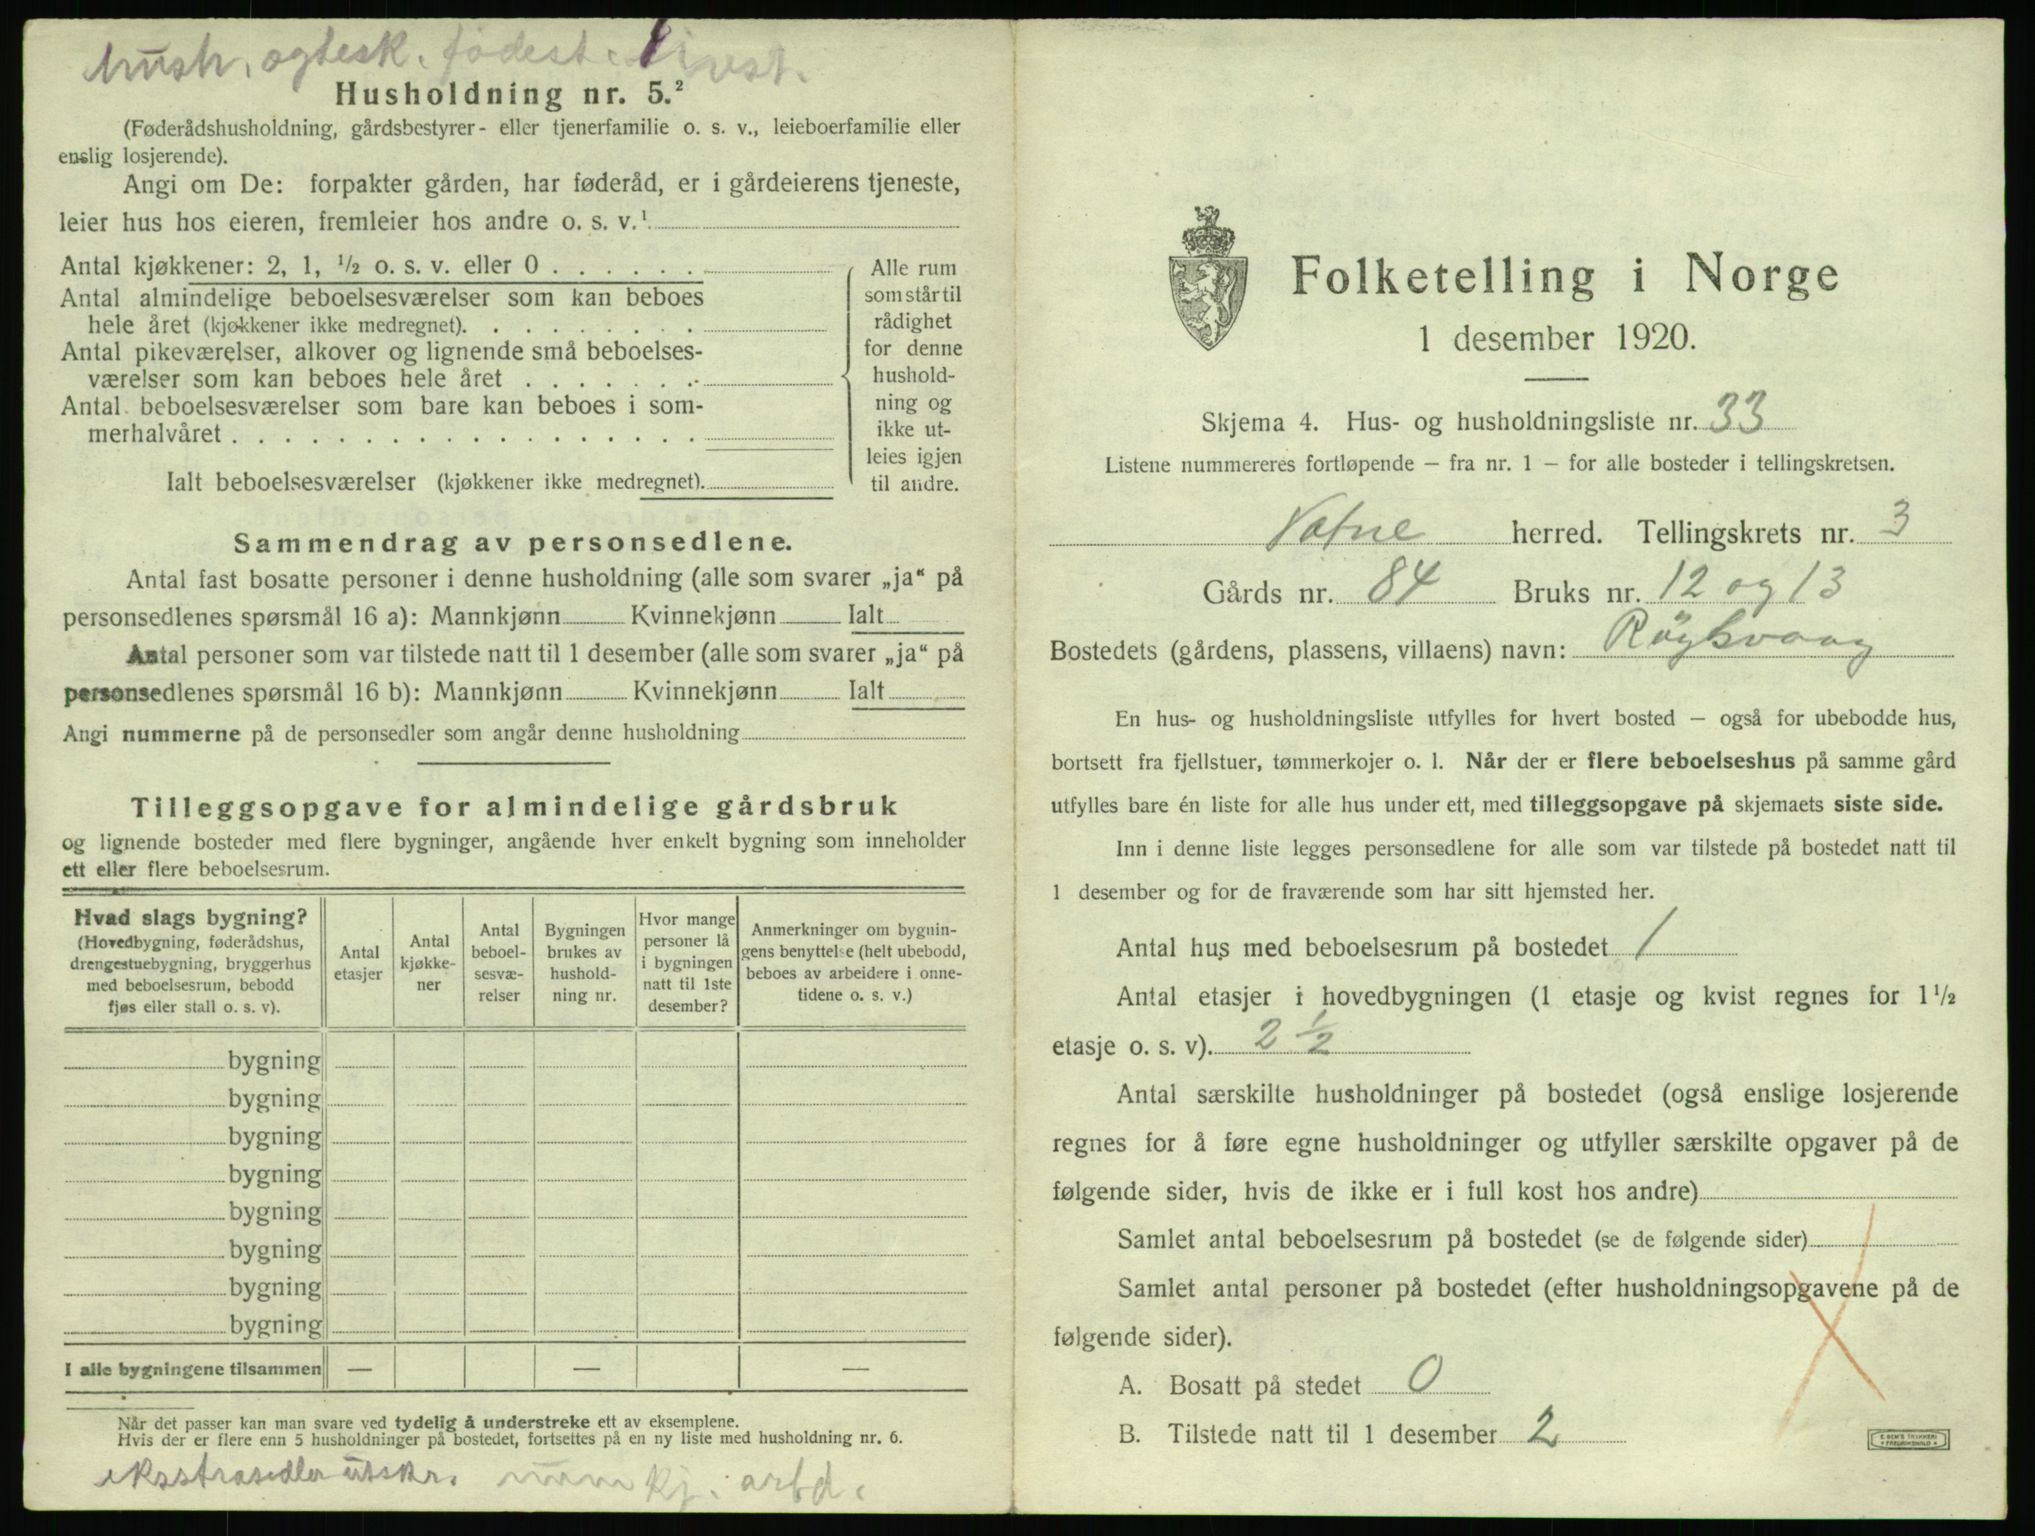 hush. ogtesk. fødest. livst.
Husholdning nr. 5.²
(Føderådshusholdning, gårdsbestyrer- eller tjenerfamilie o. s. v., leieboerfamilie eller
enslig losjerende).
Angi om De: forpakter gården, har føderåd, er i gårdeierens tjeneste,
leier hus hos eieren, fremleier hos andre o. s. v.¹
Antal kjøkkener: 2, 1, ½ o. s. v. eller 0 . . . . . .
Antal almindelige beboelsesværelser som kan beboes
hele året (kjøkkener ikke medregnet). . . . . . . . .
Antal pikeværelser, alkover og lignende små beboelses-
værelser som kan beboes hele året . . . . . . .
Antal beboelsesværelser som bare kan beboes i som-
merhalvåret . . . . . . . . . . . . . . . . . .
Ialt beboelsesværelser (kjøkkener ikke medregnet).
Alle rum
som står til
rådighet
for denne
hushold-
ning og
ikke ut-
leies igjen
til andre.
Sammendrag av personsedlene.
Antal fast bosatte personer i denne husholdning (alle som svarer „ja“ på
personsedlenes spørsmål 16 a): Mannkjønn Kvinnekjønn Ialt
Antal personer som var tilstede natt til 1 desember (alle som svarer „ja“ på
personsedlenes spørsmål 16 b): Mannkjønn Kvinnekjønn Ialt
Angi nummerne på de personsedler som angår denne husholdning
Tilleggsopgave for almindelige gårdsbruk
og lignende bosteder med flere bygninger, angående hver enkelt bygning som inneholder
ett eller flere beboelsesrum.
Hvad slags bygning?
(Hovedbygning, føderådshus,
drengestuebygning, bryggerhus
med beboelsesrum, bebodd
fjøs eller stall o. s. v).
Antal
etasjer
Antal
kjøkke-
ner
Antal
beboel-
sesvæ-
relser
Bygningen
brukes av
hushold-
ning nr.
Hvor mange
personer lå
i bygningen
natt til 1ste
desember?
Anmerkninger om bygnin-
gens benyttelse (helt ubebodd,
beboes av arbeidere i onne-
tidene o. s. v.)
bygning
bygning
bygning
bygning
bygning
bygning
bygning
bygning
I alle bygningene tilsammen — — —
Når det passer kan man svare ved tydelig å understreke ett av eksemplene.
Hvis der er flere enn 5 husholdninger på bostedet, fortsettes på en ny liste med husholdning nr. 6.
eksstrasedler utskr. kj. arbd.
Folketelling i Norge
1 desember 1920.
Skjema 4. Hus- og husholdningsliste nr. 33
Listene nummereres fortløpende – fra nr. 1 – for alle bosteder i tellingskretsen.
Vatne herred. Tellingskrets nr. 3
Gårds nr. 84 Bruks nr. 12 og 13
Bostedets (gårdens, plassens, villaens) navn: Røyksvaag
En hus- og husholdningsliste utfylles for hvert bosted – også for ubebodde hus,
bortsett fra fjellstuer, tømmerkojer o. l. Når der er flere beboelseshus på samme gård
utfylles bare én liste for alle hus under ett, med tilleggsopgave på skjemaets siste side.
Inn i denne liste legges personsedlene for alle som var tilstede på bostedet natt til
1 desember og for de fraværende som har sitt hjemsted her.
Antal hus med beboelsesrum på bostedet 1
Antal etasjer i hovedbygningen (1 etasje og kvist regnes for 1½
etasje o. s. v). 2 ½
Antal særskilte husholdninger på bostedet (også enslige losjerende
regnes for å føre egne husholdninger og utfyller særskilte opgaver på de
følgende sider, hvis de ikke er i full kost hos andre)
Samlet antal beboelsesrum på bostedet (se de følgende sider)
Samlet antal personer på bostedet (efter husholdningsopgavene på de
følgende sider).
A. Bosatt på stedet 0
B. Tilstede natt til 1 desember 2